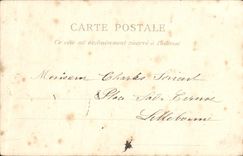 CARTE POSTALE
Ce côté est exclusivement réservé à l'adresse
Monsieur Charles
Place
Lillebonne